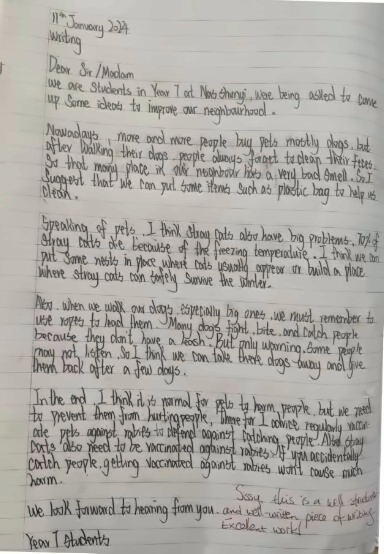 11th January 2024
Writing
Dear Sir/Madam
We are students in Year 7 at Nas Shangi, were being asked to come
up some ideas to improve our neighbourhood.
Nowadays, more and more people buy pets mostly dogs, but
after walking their dogs, people always forget to clean their feces.
So that many place in our neighbour has a very bad smell. So I
suggest that we can put some items such as plastic bag to help us
clean.
Speaking of pets. I think stray cats also have big problems. 70% of
stray cats die because of the freezing temperature. I think we can
put some nests in place where cats usually appear or build a place
where stray cats can safely survive the winter.
Also, when we walk our dogs, especially big ones, we must remember to
use ropes to hoad them. Many dogs fight, bite, and catch people
because they don't have a leash. But only warning, some people
may not listen. So I think we can take there dogs away and give
them back after a few days.
In the end, I think it is normal for pets to harm people, but we need
to prevent them from hurting people, there for I advice regularly vaccin-
ate pets against rabies to defend against catching people. Also stray
cats also need to be vaccinated against rabies. If you accidentally
catch people, getting vaccinated against rabies won't cause much
harm.
We look forward to hearing from you.
Year 7 Students
this is a well structured
and well-written piece of writing.
Excellent work!